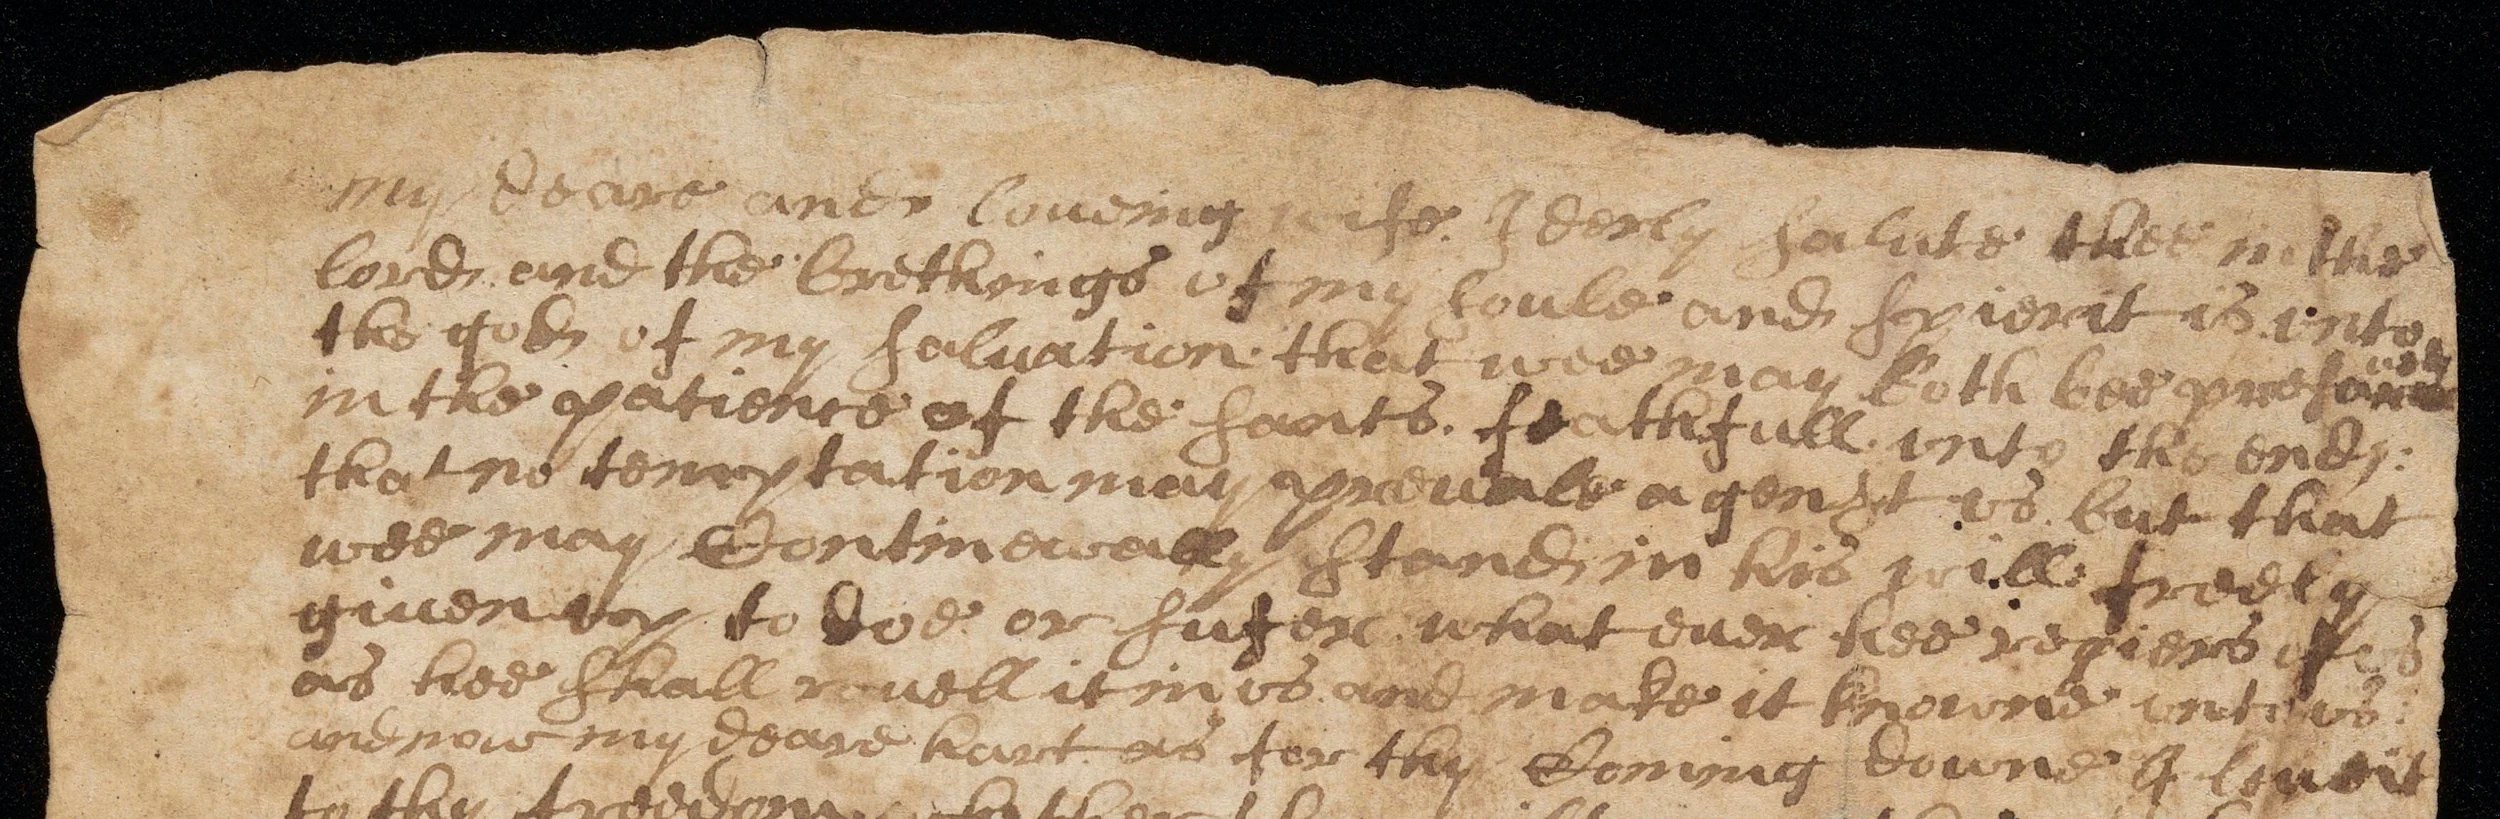 my deare and loueing wife. I derly salute thee in the
lord and the brethings of my soule and spierit is vnto
the god of my saluation that wee may both bee presarued
in the patience of the sants. feathfull vnto the end:
that no temptation may preuale agenst vs. but that
wee may Continewally stand in his will freely
giuen vp to doe or sufer what euer hee requiers of vs
as hee shall reuell it in vs and make it knowne vnto vs:
and now my deare hart as for thy Coming downe I leueit
to thy freedom